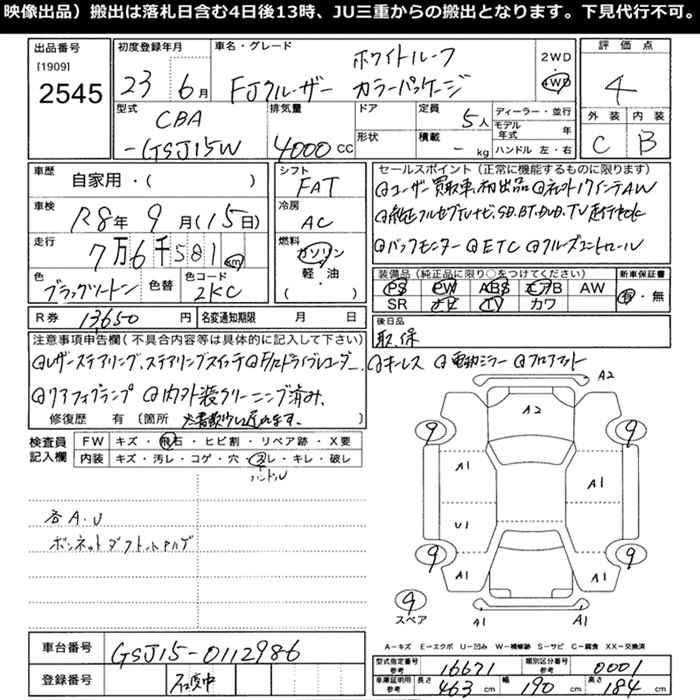 映像出品）搬出は落札日含む4日後13時、JU三重からの搬出となります。下見代行不可。
出品番号
[1909]
2545
初度登録年月
23 6月
車名・グレード
ホワイトルーフ
FJクルーザー カラーパッケージ
2WD
4WD
評価点
4
外装 内装
C B
型式
CBA
-GSJ15W
排気量
4000 CC
ドア
形状
定員
5人
積載
- kg
ディーラー・並行
モデル年式 年
ハンドル 左・右
車歴
自家用・( )
車検
R8年 9月(15日)
走行
7万6千581 km
色
ブラックツートン
色替
色コード
2KC
シフト
FAT
冷房
AC
燃料
ガソリン
軽・油
セールスポイント（正常に機能するものに限ります）
ユーザー買取車、初出品
純正フルセグTVナビ、SD、BT、DVD、TV
バックモニター ETC クルーズコントロール
装備品（純正品に限り○をつけてください）
PS PW ABS エアB AW
SR ナビ TV カワ
新車保証書
有・無
R券 13650円
名変通知期限 月 日
後日品
取、保
注意事項申告欄（不具合内容等は具体的に記入して下さい）
レザーステアリング、ステアリングスイッチ ドライブレコーダー、キーレス 電動ミラー フロアマット
リアフォグランプ 内外装クリーニング済み、
修復歴 有〔箇所 〕
検査員
記入欄
FW キズ・飛石・ヒビ割・リペア跡・X要
内装 キズ・汚レ・コゲ・穴・スレ・キレ・破レ
ハンドル
各A.U
ボンネットダクト
A2
A2
9 9
A1 A1
A1
U1
9 9
A1 A1
9
スペア
A1 A1
A=キズ E=エクボ U=凹み W=補修跡 S=サビ C=腐食 XX=交換済
車台番号 GSJ15-0112986
登録番号
型式指定番号 参考 16671
類別区分番号 参考 0001
車庫証明用 参考 長さ 463 cm 幅 190 cm 高さ 184 cm